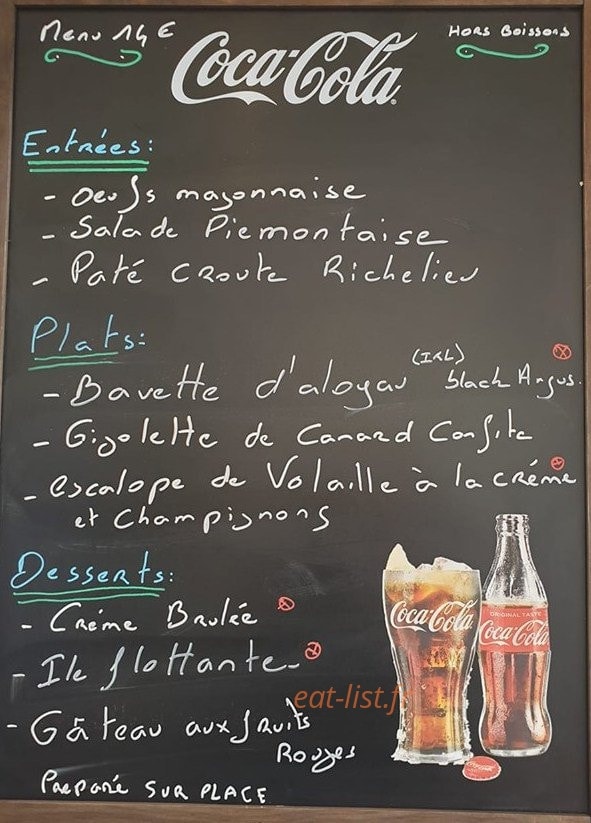 Menu 14 €
Coca-Cola
HORS BOISSONS
Entrées:
- Oeufs mayonnaise
- Salade Piemontaise
- Paté CROUTE Richelieu
Plats:
- Bavette d'aloyau (IRL) black Angus.
- Gigolette de Canard Confite
- escalope de Volaille à la créme
et Champignons
Desserts:
- Créme Brulée
- Ile flottante
- Gâteau aux fruits
Rouges
Preparé SUR PLACE
eat-list.fr
Coca-Cola
ORIGINAL TASTE
Coca-Cola